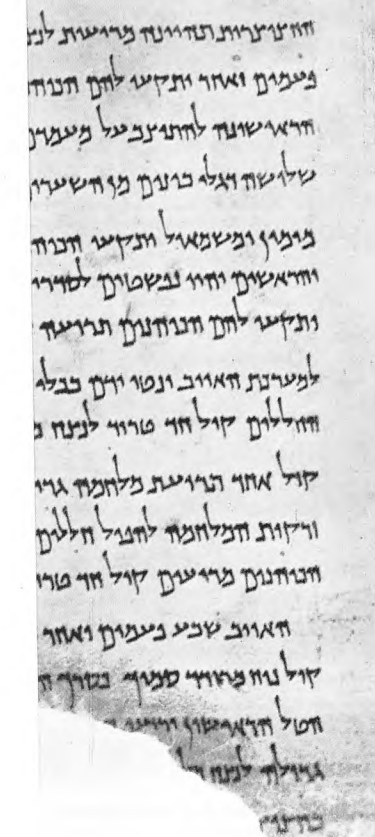 החצוצרות תהיינה מריעות לנצ
פעמים ואחר יתקעו להם הכוהנ
הראישונה להתיצב על מעמדם
שלושה דגלי בינים מן השערים
מימין ומשמאול ותקעו הכוה
והראשים יהיו נפשטים לסדרי
ותקעו להם הכוהנים תרועה
למערכת האויב ונטו ידם בכלי
החללים קול חד טרוד לנצח מ
קול אחד תרועת מלחמה גדו
זרקות המלחמה להפיל חללים
הכוהנים מריעים קול חד טרו
האויב שבע פעמים ואחר
קול נוח מרודד סמוך כסרך ה
הטל הראישון יריעו
גדולה לנצח